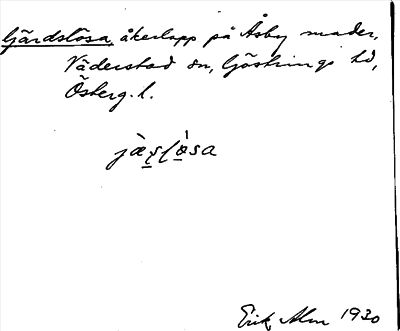 Gärdslösa, åkerlapp på Åsby mader,
Väderstad sn, Göstrings hd,
Österg. l.
Erik Alm 1930